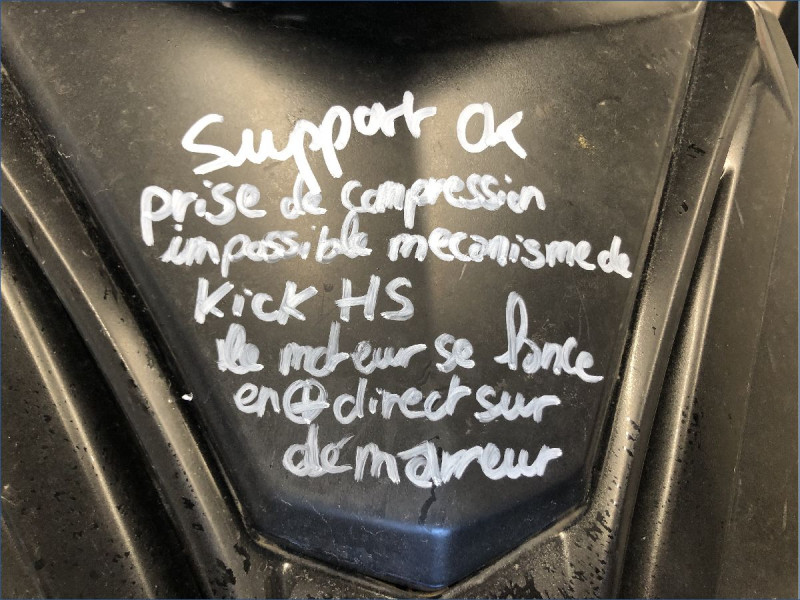 Support OK
prise de compression
impossible mecanisme de
Kick HS
le moteur se lance
en ⊕ direct sur
démarreur